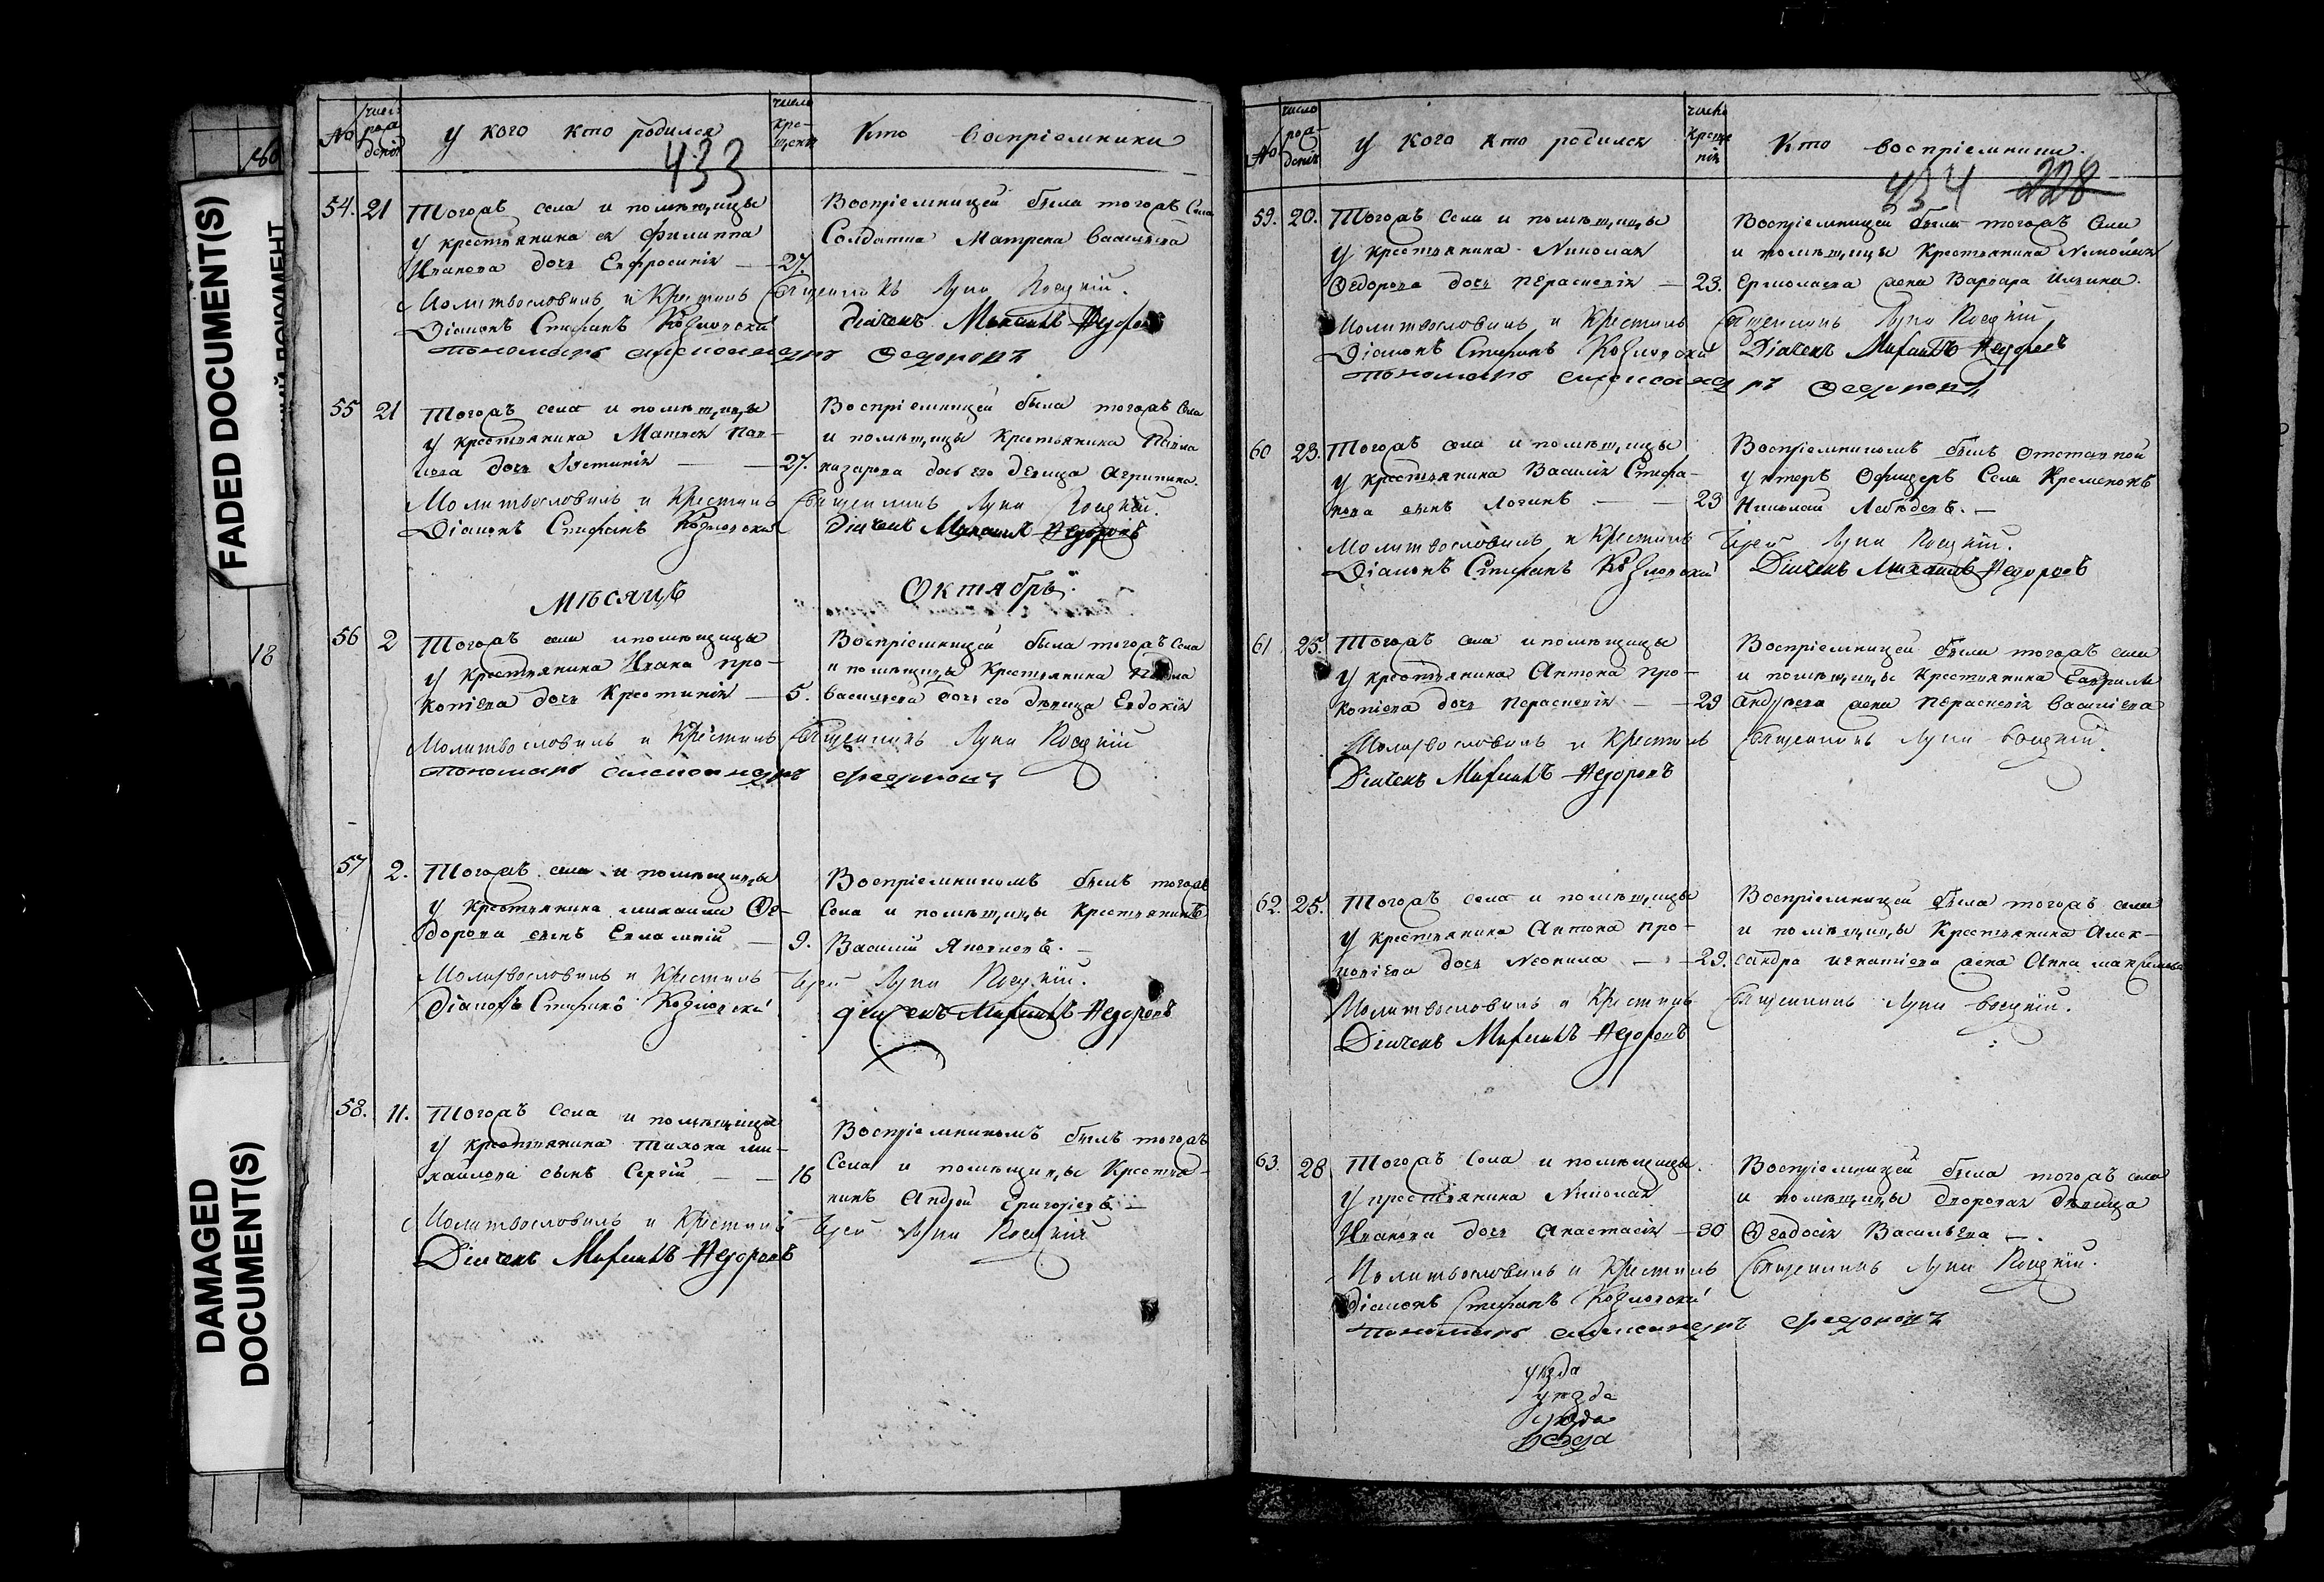 FADED DOCUMENT(S)
DAMAGED
DOCUMENT(S)
18
№ число рожденія У кого кто родился число крещенія Кто воспріемники
433
54. 21 Тогожъ села и помѣщицы
у крестьянина ея Филиппа
Иванова дочь Евфросинія — 27.
Воспріемницей была тогожъ села
Солдатка Матрена Васильева
Молитвословилъ и Крестилъ Священникъ Лука
Діаконъ Стефанъ Козловскій Дьячекъ Михаилъ Федоровъ
Пономарь Александръ Федоровъ
55 21 Тогожъ села и помѣщицы
у крестьянина Матвея Пав-
лова дочь Устинія — 27.
Воспріемницей была тогожъ села
и помѣщицы Крестьянина Павла
Назарова дочь его дѣвица Агрипина.
Молитвословилъ и Крестилъ Священникъ Лука
Діаконъ Стефанъ Козловскій Дьячекъ Михаилъ Федоровъ
Мѣсяцъ Октябрь.
56 2 Тогожъ села и помѣщицы
у крестьянина Ивана Про-
копіева дочь Крестинія — 5.
Воспріемницей была тогожъ села
и помѣщицы Крестьянина
Васильева дочь его дѣвица Евдокія
Молитвословилъ и Крестилъ Священникъ Лука
Пономарь Александръ Федоровъ
57 2. Тогожъ села и помѣщицы
у крестьянина Михаила Фе-
дорова сынъ — 9.
Воспріемникомъ былъ тогожъ
села и помѣщицы Крестьянинъ
Василій
Молитвословилъ и Крестилъ Іерей Лука
Діаконъ Стефанъ Козловскій Дьячекъ Михаилъ Федоровъ
58. 11. Тогожъ села и помѣщицы
у крестьянина Тихона Ми-
хайлова сынъ Сергій — 16
Воспріемникомъ былъ тогожъ
села и помѣщицы Крестья-
нинъ Андрей Григорьевъ —
Молитвословилъ и Крестилъ Іерей Лука
Дьячекъ Михаилъ Федоровъ
№ число рожденія У кого кто родился число крещенія Кто воспріемники.
434 228
59. 20. Тогожъ села и помѣщицы
у крестьянина Николая
Федорова дочь Перасковія — 23.
Воспріемницей была тогожъ села
и помѣщицы Крестьянина Николая
Ермолаева жена Варвара
Молитвословилъ и Крестилъ Священникъ Лука
Діаконъ Стефанъ Козловскій Дьячекъ Михаилъ Федоровъ
Пономарь Александръ Федоровъ
60 23. Тогожъ села и помѣщицы
у крестьянина Василія Стефа-
нова сынъ Логинъ — 23
Воспріемникомъ былъ отставной
унтеръ Офицеръ Села Кременокъ
Николай Лебѣдевъ. —
Молитвословилъ и Крестилъ Іерей Лука
Діаконъ Стефанъ Козловскій Дьячекъ Михаилъ Федоровъ
61 25. Тогожъ села и помѣщицы
у крестьянина Антона Про-
копіева дочь Перасковія — 29
Воспріемницей была тогожъ села
и помѣщицы Крестьянина Гаврилы
Андреева жена Перасковія Василіева
Молитвословилъ и Крестилъ Священникъ Лука
Дьячекъ Михаилъ Федоровъ
62. 25. Тогожъ села и помѣщицы
у крестьянина Антона Про-
копіева дочь Неонила — 29.
Воспріемницей была тогожъ села
и помѣщицы Крестьянина Алек-
сандра Игнатіева жена Анна
Молитвословилъ и Крестилъ Священникъ Лука
Дьячекъ Михаилъ Федоровъ
63. 28 Тогожъ села и помѣщицы.
у крестьянина Николая
Иванова дочь Анастасія — 30
Воспріемницей была тогожъ села
и помѣщицы дворовая дѣвица
Феодосія Васильева —.
Молитвословилъ и Крестилъ Священникъ Лука
Діаконъ Стефанъ Козловскій
Пономарь Александръ Федоровъ
уѣзда
уѣзда